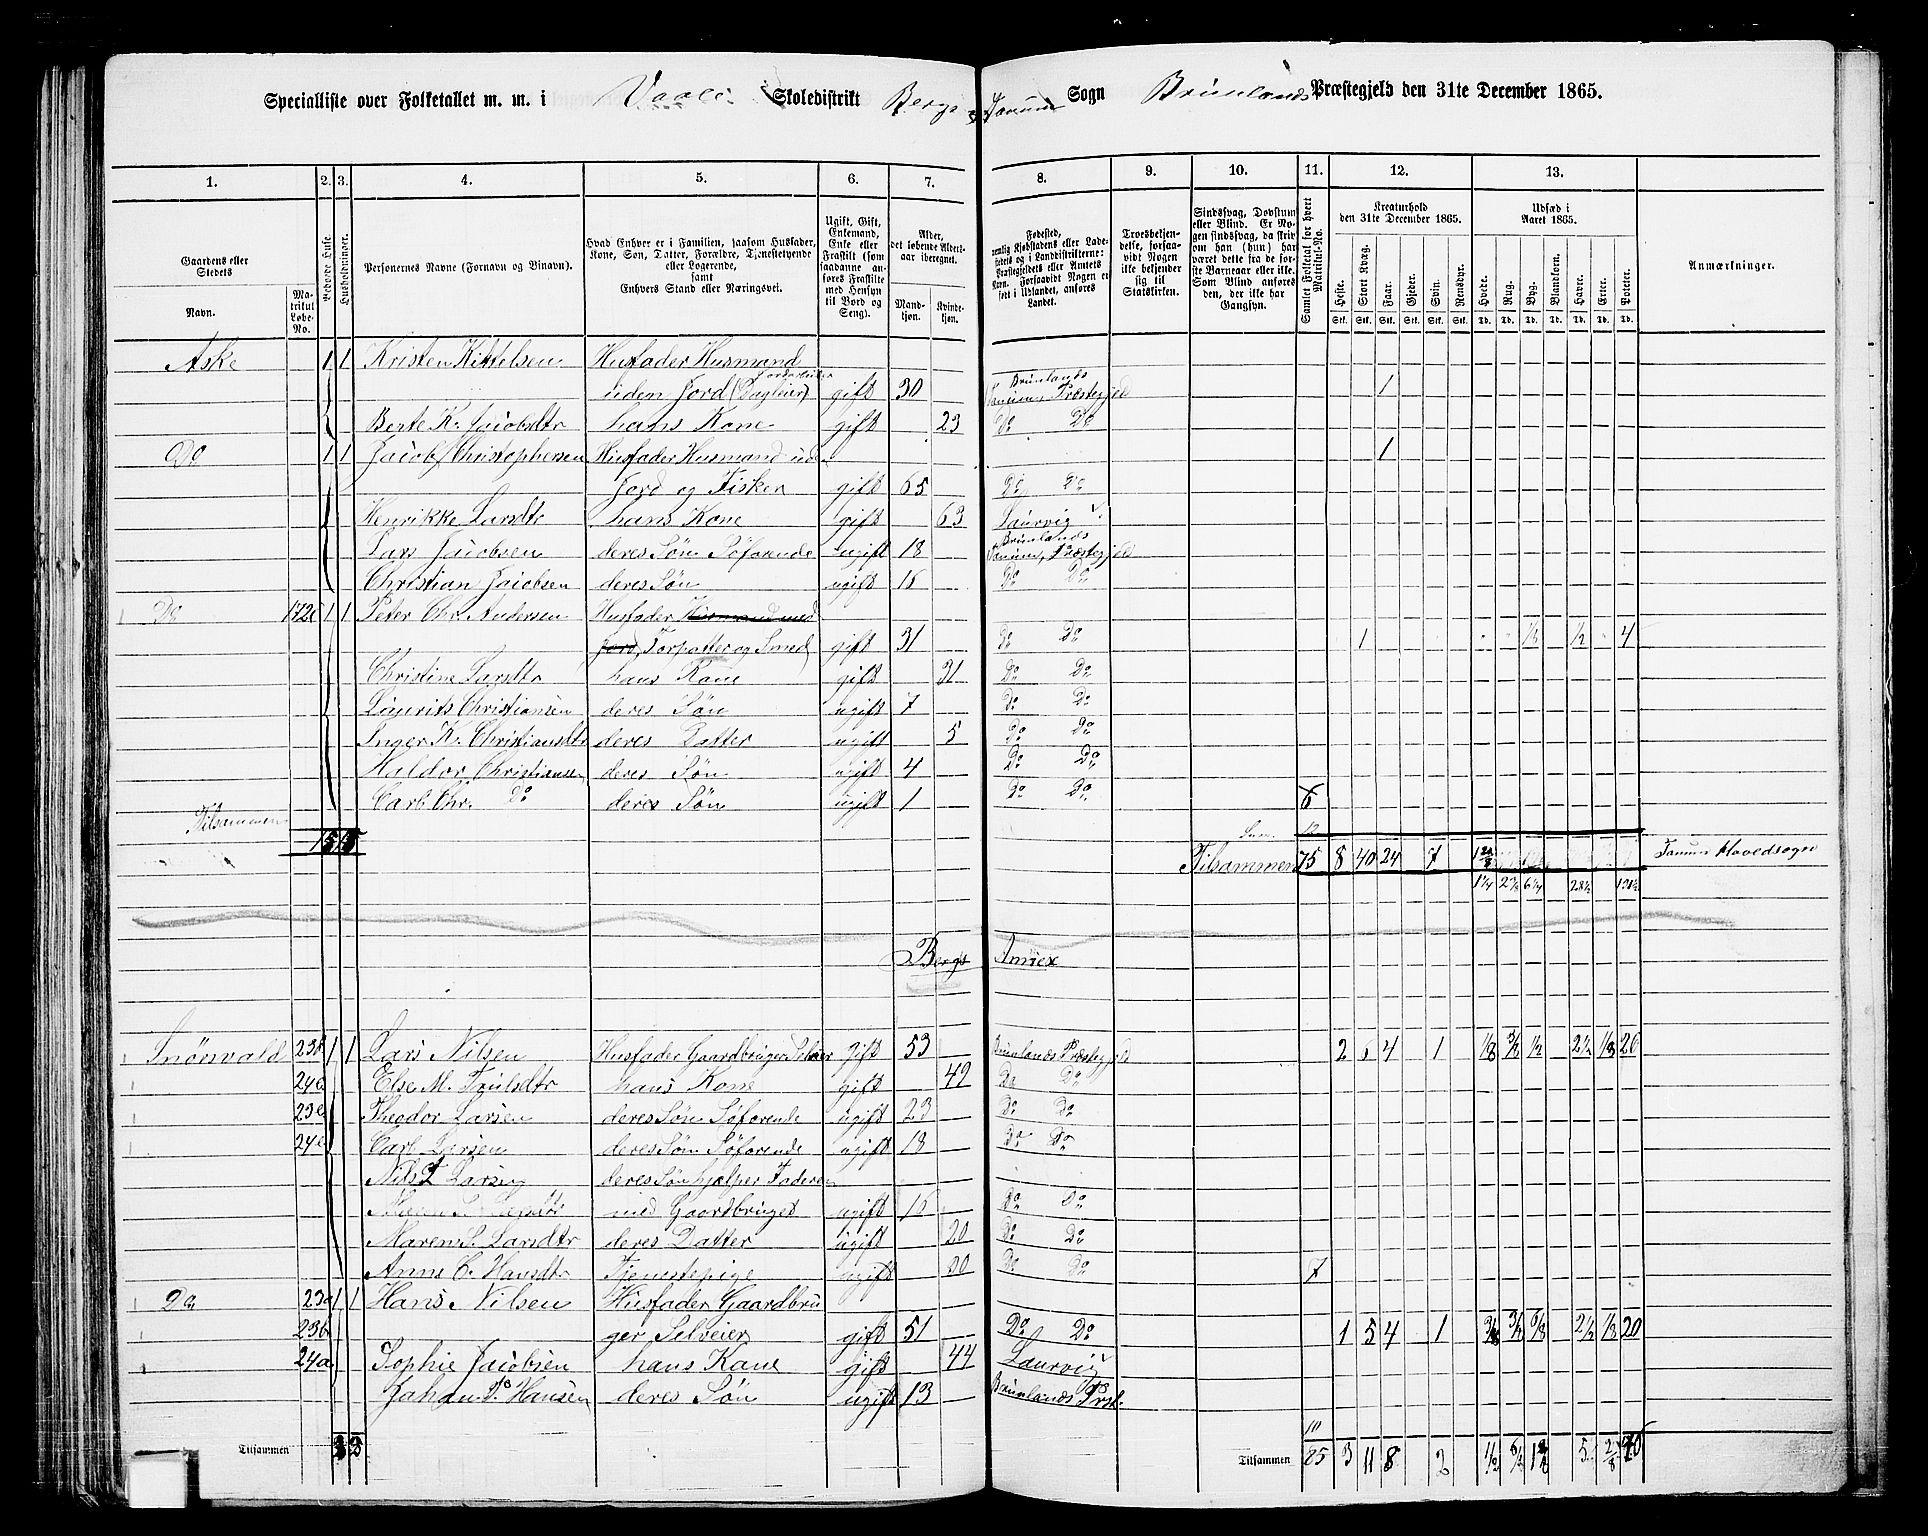 Specialliste over Folketallet m. m. i Vaale Skoledistrikt Bergs og Tanum Sogn Brunlands Præstegjeld den 31te December 1865.
1. 2. 3. 4. 5. 6. 7. 8. 9. 10. 11. 12. 13.
Gaardens eller Stedets
Navn.
Matrikul Løbe-No.
Beboede Huse
Husholdninger.
Personernes Navne (Fornavn og Binavn).
Hvad Enhver er i Familien, saasom Husfader, Kone, Søn, Datter, Forældre, Tjenstetyende eller Logerende, samt Enhvers Stand eller Næringsvei.
Ugift, Gift, Enkemand, Enke eller Fraskilt (som saadanne anføres Fraskilte med Hensyn til Bord og Seng).
Alder, det løbende Alderaar iberegnet.
Mandkjøn. Kvindekjøn.
Fødested,
Troesbekjendelse, forsaavidt Nogen ikke bekjender sig til Statskirken.
Sindssvag, Døvstum eller Blind. Er Nogen sindssvag, da skriv om han (hun) har været dette fra de første Barneaar eller ikke. Som Blind anføres den, der ikke har Gangsyn.
Samlet Folketal for hvert Matrikul-No.
Kreaturhold den 31te December 1865.
Heste. Stort Kvæg. Faar. Gjeder. Svin. Rensdyr.
Stk. Stk. Stk. Stk. Stk. Stk.
Udsæd i Aaret 1865.
Hvede. Rug. Byg. Blandkorn. Havre. Erter. Poteter.
Td. Td. Td. Td. Td. Td. Td.
Anmærkninger.
Aske 1 1 Kristen Kittelsen Husfader Husmand
uden Jord (Dagleier) gift 30 Brunlands Tanum, Præstegjeld 1
Berte K. Jacobsdtr hans Kone gift 23 Do Do
Do 1 1 Jacob Christophersen Husfader Husmand uden 1
Jord og Fisker gift 65 Do Do
Henrikke Larsdtr hans Kone gift 63 Laurvig
Lars Jacobsen deres Søn Søfarende ugift 18 Brunlands Tanum, Præstegjeld
Christian Jacobsen deres Søn ugift 16 Do Do
Do 172c 1 1 Peter Chr. Andersen Husfader Husmand med
Jord, Forpagter og Smed gift 31 Do Do 1 1/2 1/2 4
Christine Larsdtr hans Kone gift 31 Do Do
Laurits Christiansen deres Søn ugift 7 Do Do
Inger K. Christiansdtr deres Datter ugift 5 Do Do
Haldor Christiansen deres Søn ugift 4 Do Do
Carl Chr. Do deres Søn ugift 1 Do Do. 6
Tilsammen
12
Tilsammen 75 8 40 24 7 Tanum Hovedsogn
1 1/4 2 1/2 6 1/4 28 1/2
Bergs Annex
Snöesvald 23 1 1 Lars Nilsen Husfader Gaardbruger Selveier gift 53 Brunlands Præstegjeld 2 6 4 1 1/8 3/8 1/2 2 1/2 1/8 26
24 Else M. Trulsdtr hans Kone gift 49 Do Do
23 Theodor Larsen deres Søn Søfarende ugift 23 Do Do
24 Carl Larsen deres Søn Søfarende ugift 18 Do Do
Nils Larsen deres Søn hjælper Faderen
med Gaardbruget ugift 16 Do Do
Maren S. Larsdtr deres Datter ugift 20 Do Do
Anne C. Hansdtr Tjenestepige ugift 20 Do Do 7
Do 23a 1 1 Hans Nilsen Husfader Gaardbru
23b ger Selveier gift 51 Do Do 1 5 4 1 2 1/2 1/8 20
24a Sophie Jacobsen hans Kone gift 44 Laurvig
Johan Hansen deres Søn ugift 13 Brunlands Prst.
Tilsammen
10
Tilsammen 85 3 11 8 2